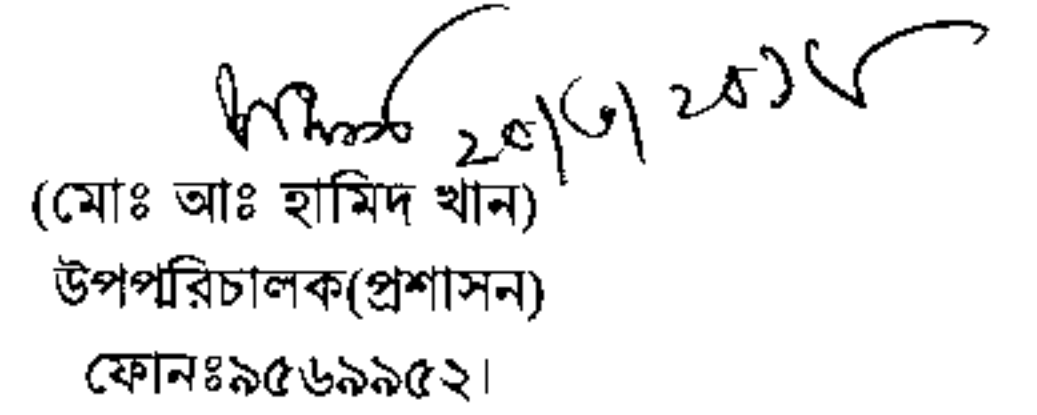 (মোঃ আঃ হামিদ খান)
উপপরিচালক(প্রশাসন)
ফোনঃ৯৫৬৯৯৫২।